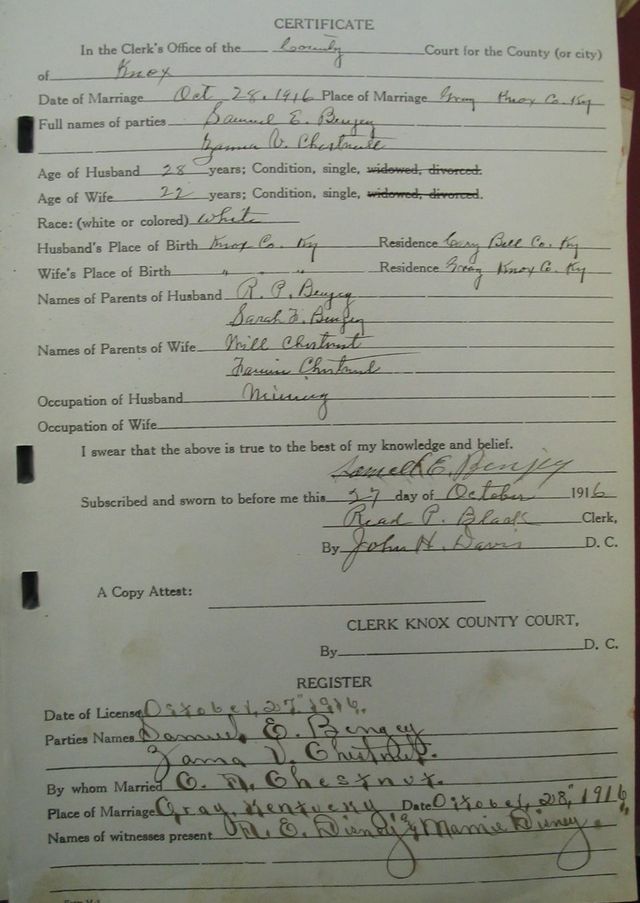 CERTIFICATE
In the Clerk's Office of the County Court for the County (or city)
of Knox
Date of Marriage Oct 28, 1916 Place of Marriage Gray Knox Co. Ky
Full names of parties Samuel E. Bengey
Zama V. Chestnut
Age of Husband 28 years; Condition, single, widowed, divorced.
Age of Wife 22 years; Condition, single, widowed, divorced.
Race: (white or colored) White
Husband's Place of Birth Knox Co. Ky Residence Cary Bell Co. Ky
Wife's Place of Birth " " " Residence Gray Knox Co. Ky
Names of Parents of Husband R. P. Bengey
Sarah F. Bengey
Names of Parents of Wife Will Chestnut
Fannie Chestnut
Occupation of Husband Mining
Occupation of Wife
I swear that the above is true to the best of my knowledge and belief.
Samuel E. Bengey
Subscribed and sworn to before me this 27 day of October 1916
Read P. Black Clerk,
By John H. Davis D. C.
A Copy Attest:
CLERK KNOX COUNTY COURT,
By D. C.
REGISTER
Date of License October, 27" 1916.
Parties Names Samuel E. Bengey
Zama V. Chestnut.
By whom Married Chestnut.
Place of Marriage Gray, Kentucky Date October, 28," 1916
Names of witnesses present E. Disney & Mamie Disney.